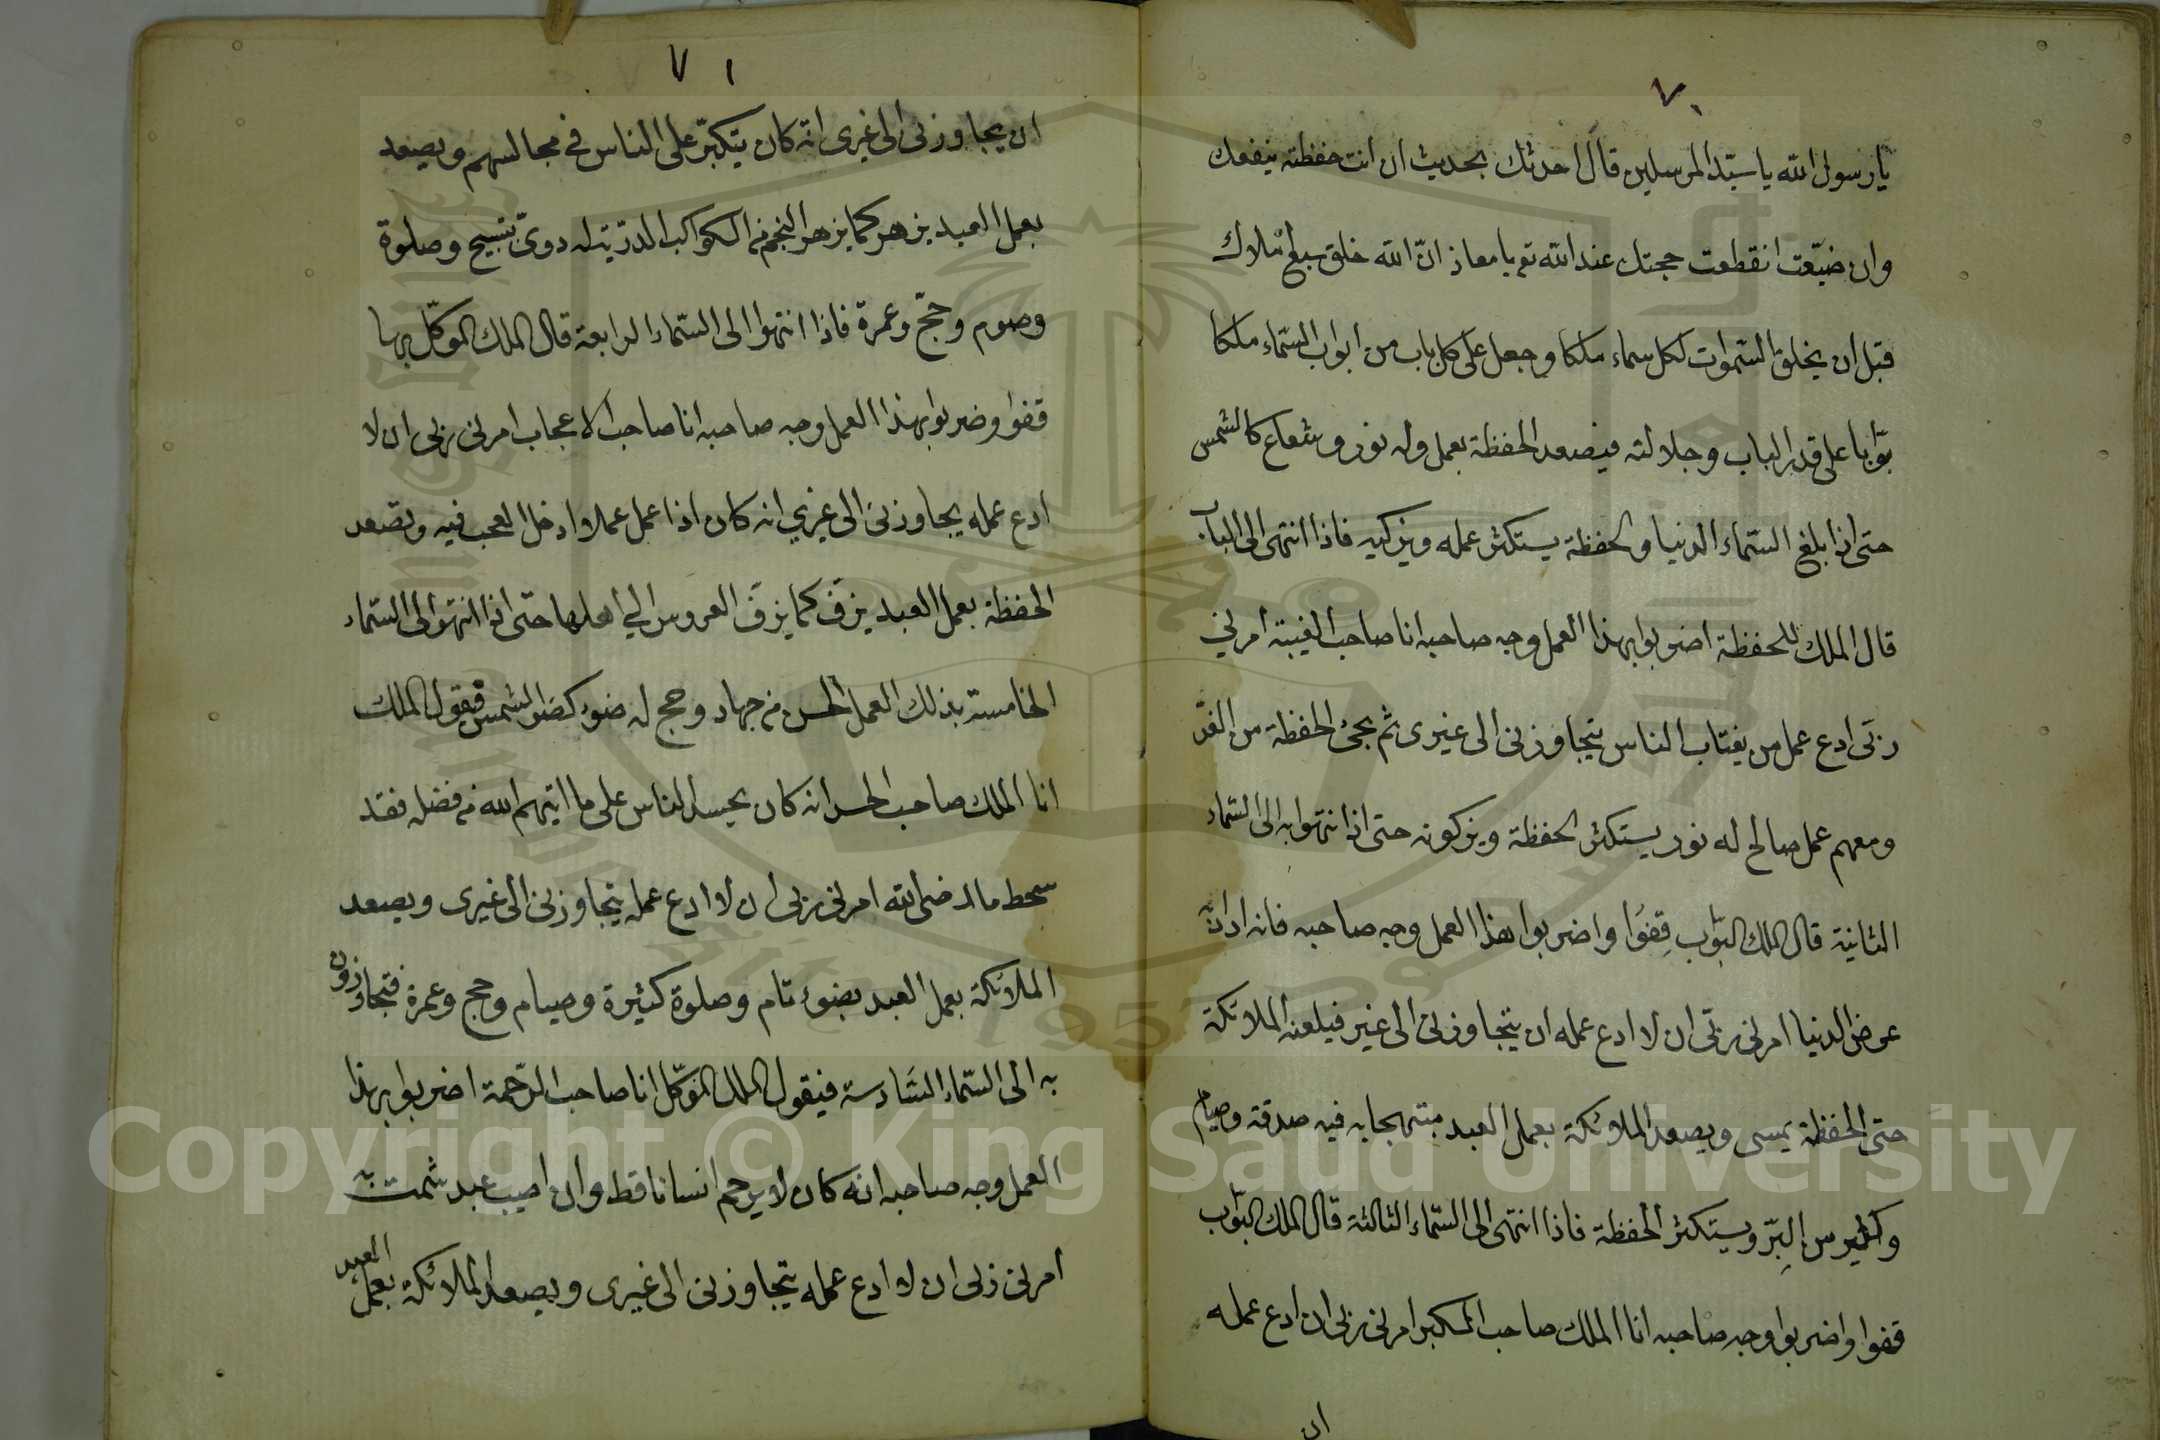 ٧٠
يا رسول الله يا سيّد المرسلين قال احدثك بحديث ان انت حفظته ينفعك
وان ضيّعت انقطعت حجتك عند الله تع يا معاذ انّ الله خلق سبع املاك
قبل ان يخلق السّموات لكل سماء ملكا وجعل على كل باب من ابواب السّماء ملكا
بوّابا على قدر الباب وجلالته فيصعد الحفظة بعمل وله نور وشعاع كالشمس
حتى اذا بلغ السّماء الدنيا والحفظة يستكثر عمله ويزكيه فاذا انتهى الى الباب
قال الملك للحفظة اضربوا بهذا العمل وجه صاحبه انا صاحب الغيبة امرني
ربّى ادع عمل من يغتاب الناس يتجاوزنى الى غيرى ثم يجئ الحفظة من الغد
ومعهم عمل صالح له نور يستكثر الحفظة ويزكونه حتى اذا انتهوا به الى السّماء
الثانية قال الملك البوّاب قِفُوا واضربوا هذا العمل وجه صاحبه فانه اراد به
عرض الدنيا امرنى ربّى ان لا ادع عمله ان يتجاوزنى الى غير فيلعنه الملائكة
حتى الحفظة يمسى ويصعد الملائكة بعمل العبد مبتهجا به فيه صدقة وصيام
وكثير من البِرّ ويستكثر الحفظة فاذا انتهى الى السّماء الثالثة قال الملك البوّاب
قفوا واضربوا وجه صاحبه انا الملك صاحب الكبر امرنى ربى ان ادع عمله
ان
٧١
ان يجاوزنى الى غيرى انّه كان يتكبّر على الناس فى مجالسهم ويصعد
بعمل العبد يزهر كما يزهر النجم من الكواكب الدرّيّة له دوىّ تسبيح وصلوة
وصوم وحجّ وعمرة فاذا انتهوا الى السّماء الرابعة قال الملك الموكّل بها
قفوا وضربوا بهذا العمل وجه صاحبه انا صاحب الاعجاب امرنى ربى ان لا
ادع عمله يجاوزنى الى غيري انه كان اذا عمل عملا ادخل العجب فيه وتصعد
الحفظة بعمل العبد يزفّ كما يزفّ العروس الي اهلها حتى اذا انتهوا الى السّماء
الخامسة بذلك العمل الحسن من جهاد وحج له ضوء كضوء الشمس فيقول الملك
انا الملك صاحب الحسد انه كان يحسد الناس على ما اتيهم الله من فضله فقد
سخط ما ارضى الله امرنى ربى ان لا ادع عمله يتجاوزنى الى غيرى ويصعد
الملائكة بعمل العبد بضوء تام وصلوة كثيرة وصيام وحج وعمرة فتجاوزون
به الى السّماء السّادسة فيقول الملك الموكّل انا صاحب الرّحمة اضربوا بهذا
العمل وجه صاحبه انه كان لا يرحم انسانا قط وان اصيب عبد شمت به
امرنى ربى ان لا ادع عمله يتجاوزنى الى غيرى ويصعد الملائكة بعمل العبد
Copyright © King Saud University